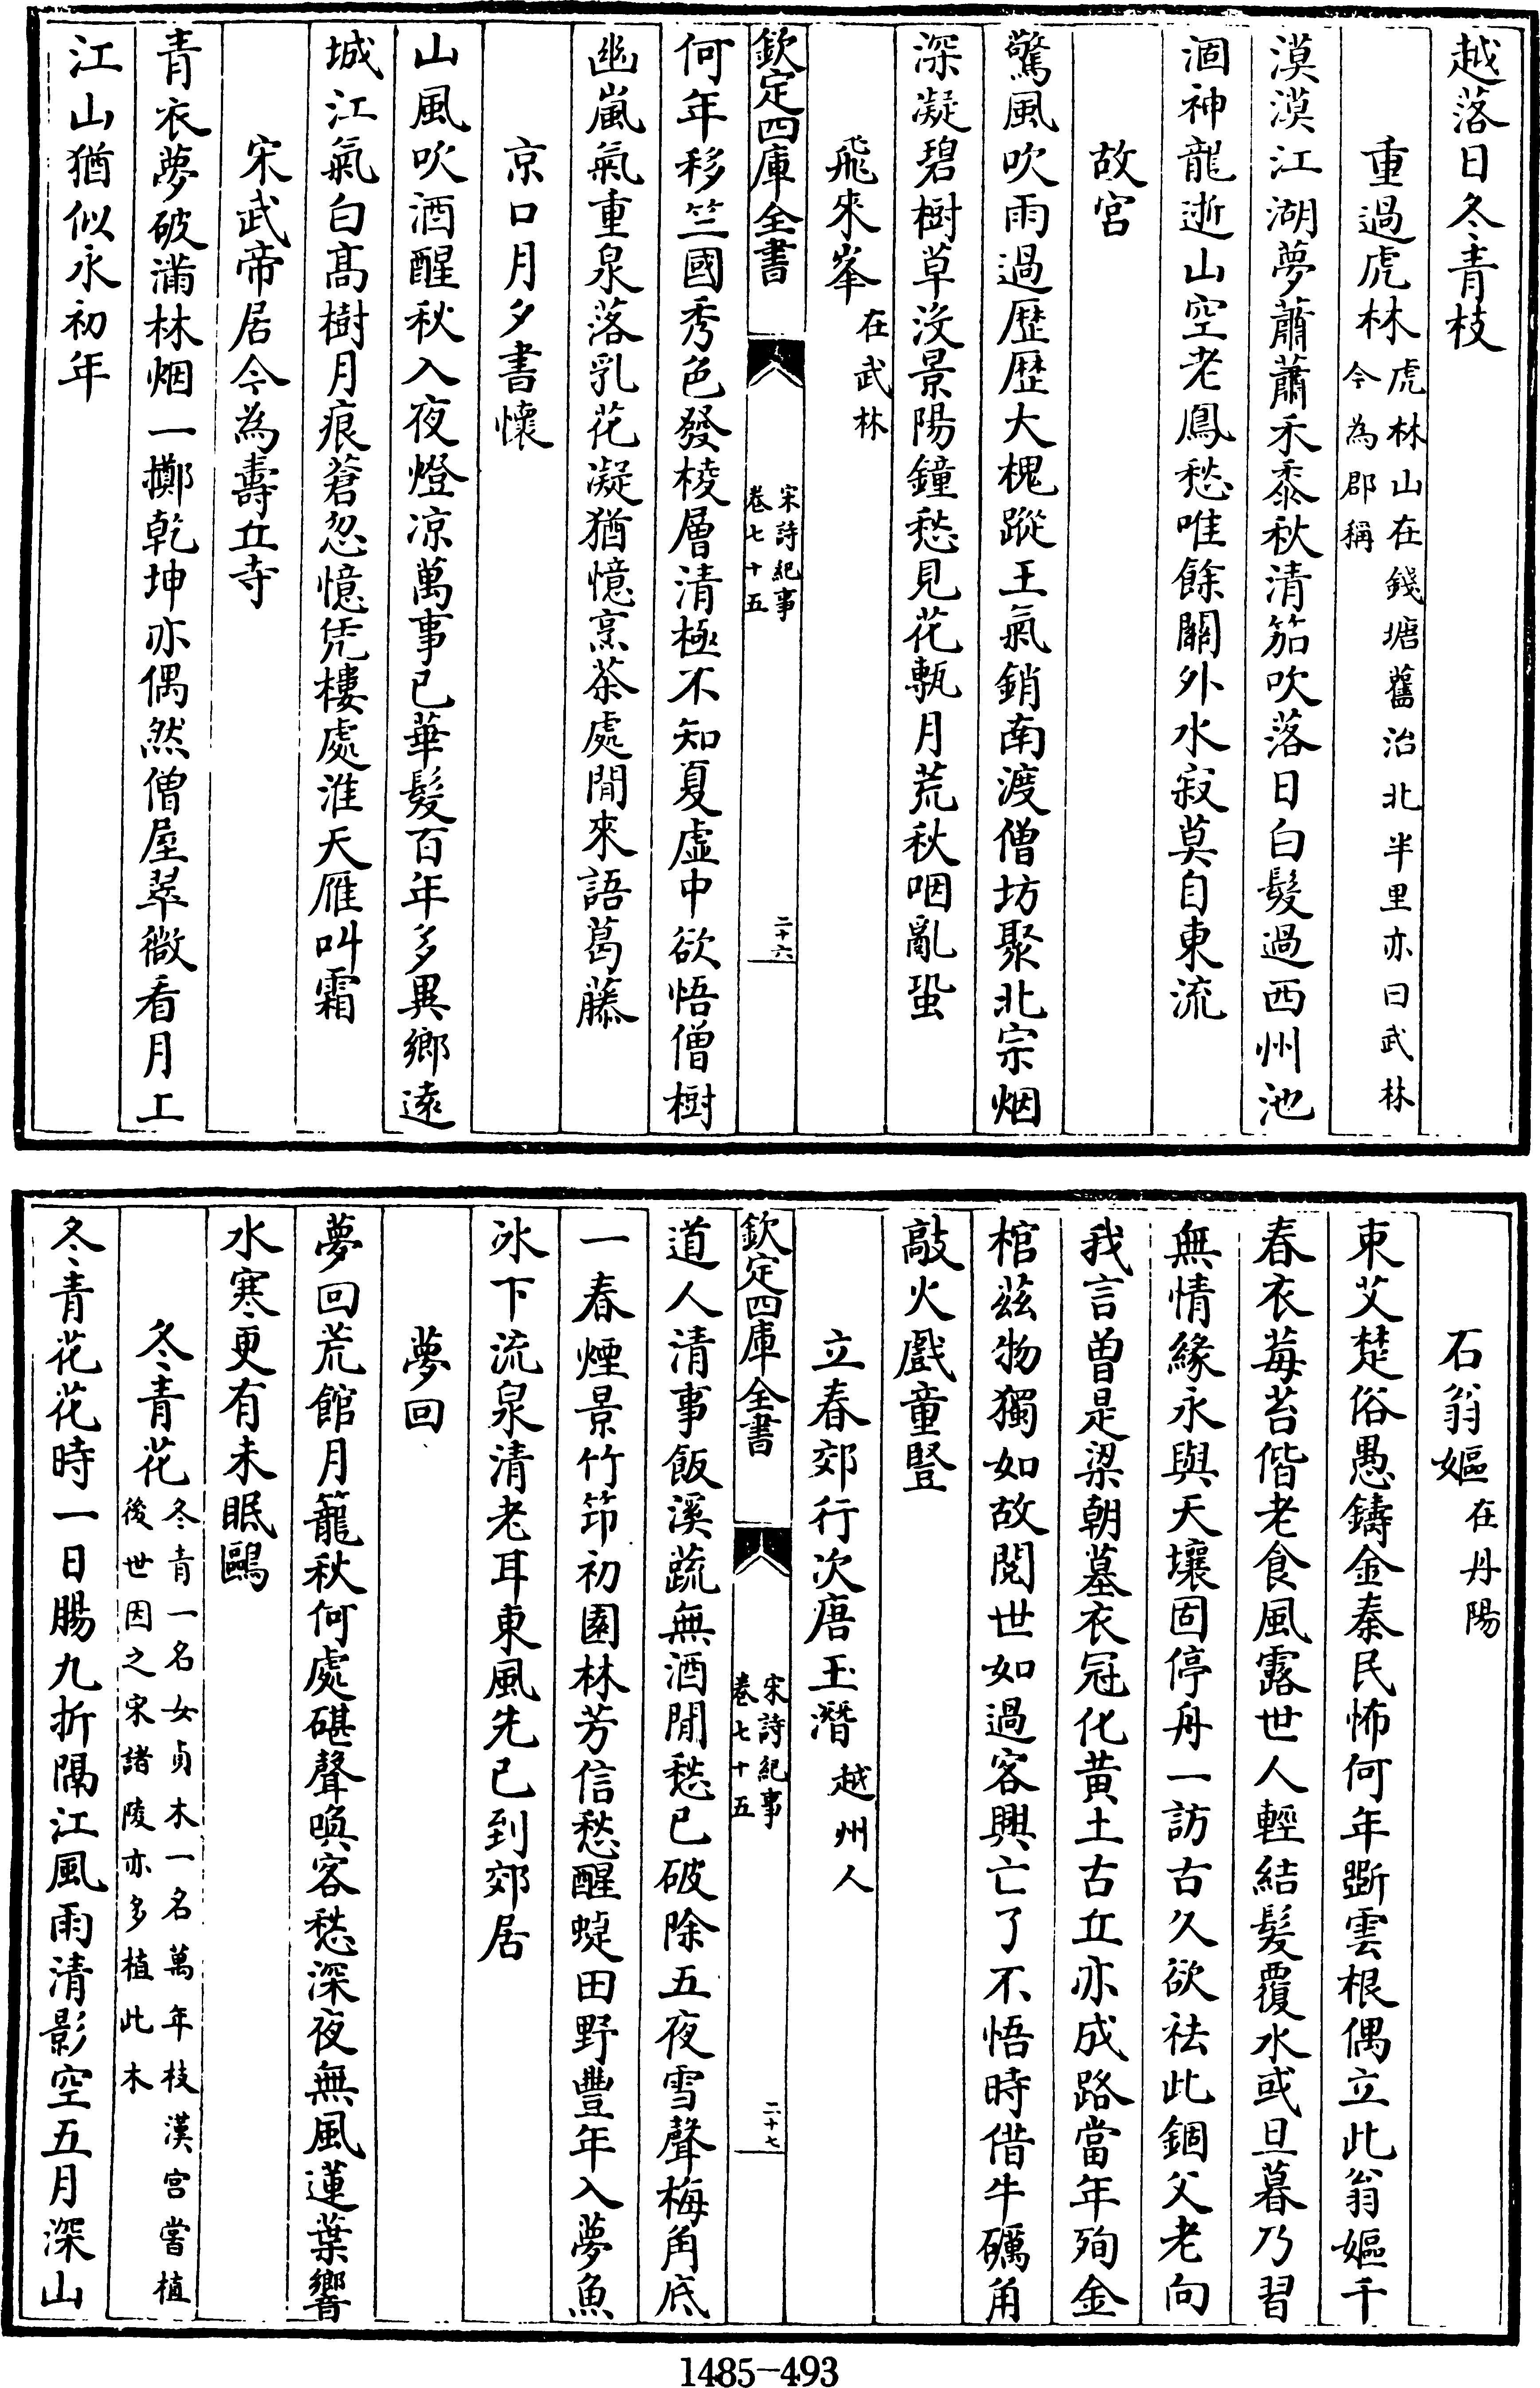 越落日冬青枝
重過虎林 虎林山在錢塘舊治北半里亦曰武林
今為郡稱
漠漠江湖夢蕭蕭禾黍秋清笳吹落日白髮過西州池
涸神龍逝山空老鳳愁唯餘關外水寂莫自東流
故宮
驚風吹雨過歴歴大槐蹤王氣銷南渡僧坊聚北宗烟
深凝碧樹草沒景陽鐘愁見花甎月荒秋咽亂蛩
飛來峯 在武林
欽定四庫全書 宋詩紀事
卷七十五 二十六
何年移竺國秀色發棱層清極不知夏虛中欲悟僧樹
幽嵐氣重泉落乳花凝猶憶烹茶處閒來語葛藤
京口月夕書懷
山風吹酒醒秋入夜燈凉萬事已華髮百年多異鄉遠
城江氣白高樹月痕蒼忽憶凭樓處淮天雁叫霜
宋武帝居今為壽丘寺
青衣夢破滿林烟一擲乾坤亦偶然僧屋翠微看月上
江山猶似永初年
石翁嫗 在丹陽
束艾楚俗愚鑄金秦民怖何年斲雲根偶立此翁嫗千
春衣莓苔偕老食風露世人輕結髮覆水或旦暮乃習
無情緣永與天壤固停舟一訪古久欲祛此錮父老向
我言曽是梁朝墓衣冠化黄土古丘亦成路當年殉金
棺兹物獨如故閱世如過客興亡了不悟時借牛礪角
敲火戲童豎
立春郊行次唐玉潛 越州人
欽定四庫全書 宋詩紀事
卷七十五 二十七
道人清事飯溪蔬無酒閒愁已破除五夜雪聲梅角底
一春煙景竹筇初園林芳信愁醒蜨田野豐年入夢魚
冰下流泉清老耳東風先已到郊居
夢回
夢回荒館月籠秋何處碪聲喚客愁深夜無風蓮葉響
水寒更有未眠鷗
冬青花 冬青一名女貞木一名萬年枝漢宮嘗植
後世因之宋諸陵亦多植此木
冬青花花時一日腸九折隔江風雨清影空五月深山
1485-493